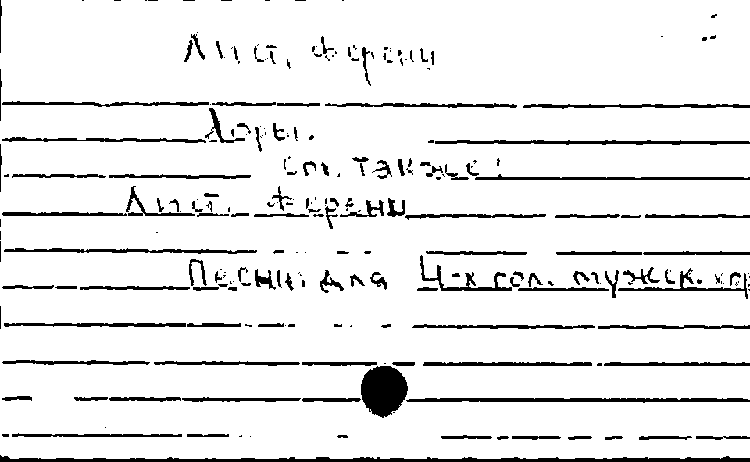 Лист, Ференц
Хоры.
см. также:
Лист, Ференц
Песни: для 4-х гол. мужск. хор